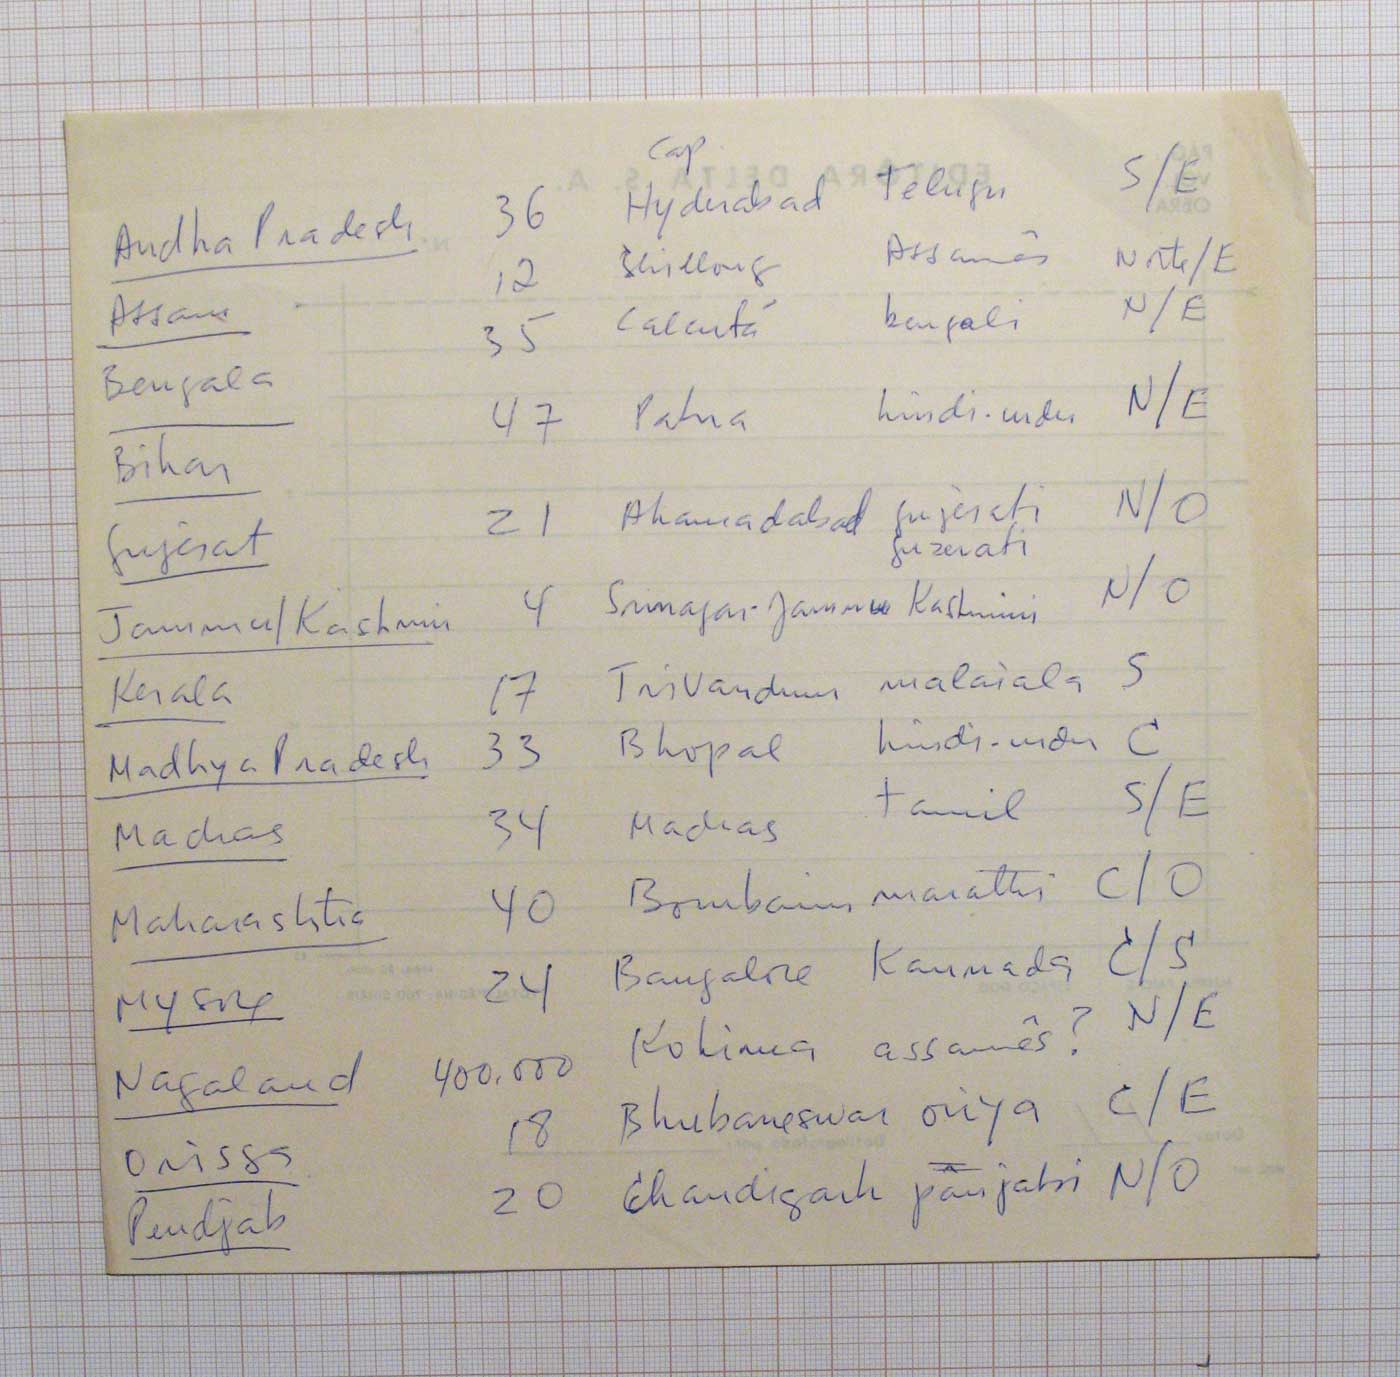 Cap.
Andha Pradesh 36 Hyderabad Telugu S/E
Assam 12 Shillong Assamês Norte/E
Bengala 35 Calcutá bengali N/E
Bihar 47 Patna hindi-urdu N/E
Gujerat 21 Ahamadabad gujerati N/O
guzerati
Jammu/Kashmir 4 Srinagar-Jammu Kashmiri N/O
Kerala 17 TriVandrum malaiala S
Madhya Pradesh 33 Bhopal hindi-urdu C
Madras 34 Madras tamil S/E
Maharashtra 40 Bombaim marathi C/O
Mysore 24 Bangalore Kannada C/S
Nagaland 400.000 Kohima assamês? N/E
Orissa 18 Bhubaneswar oriya C/E
Pendjab 20 Chandigarh panjabi N/O
EDITÔRA DELTA S. A.
OBRA